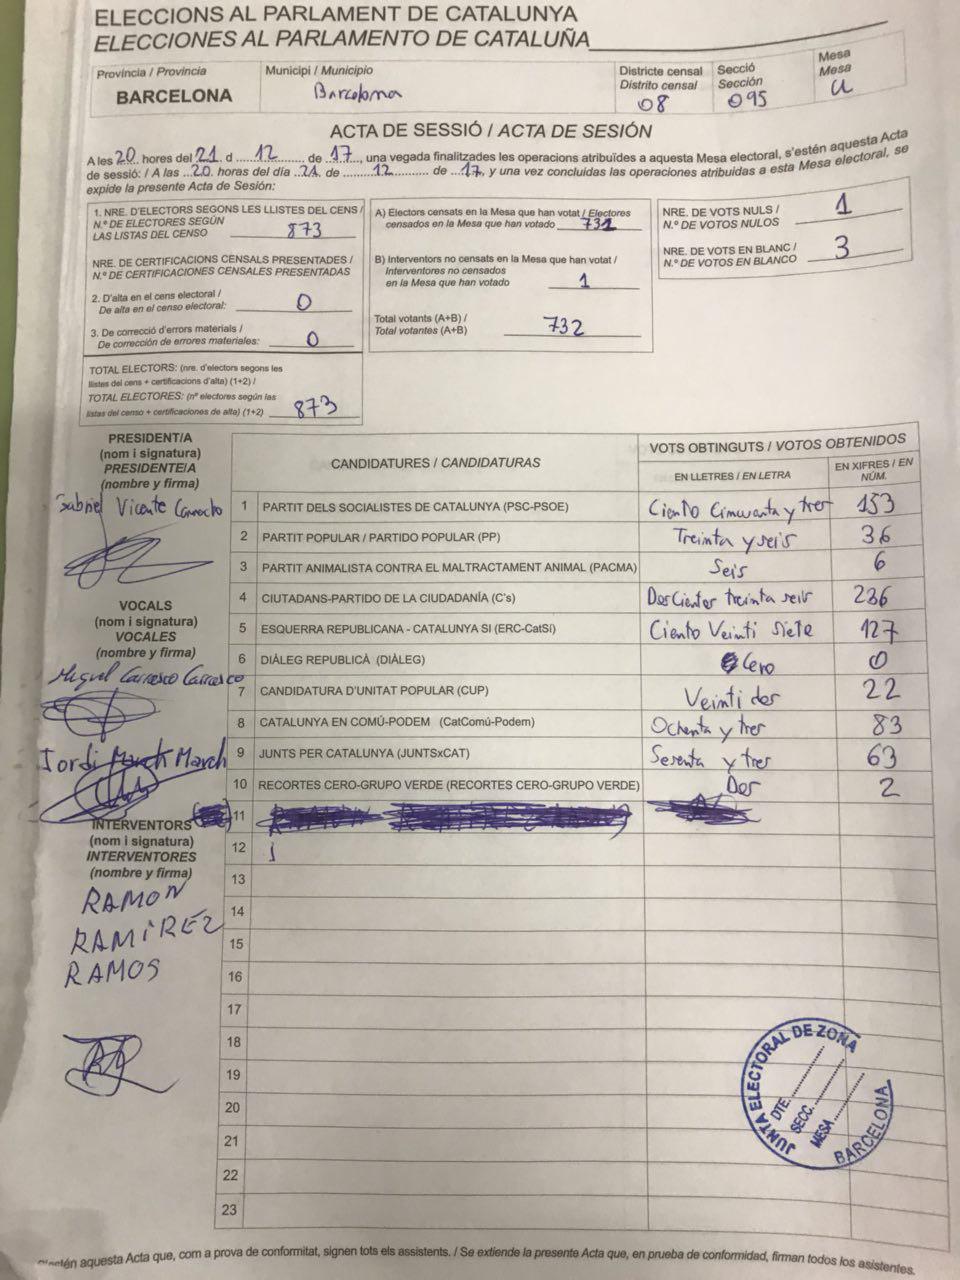 ELECCIONS AL PARLAMENT DE CATALUNYA
ELECCIONES AL PARLAMENTO DE CATALUÑA
Provincia / Provincia
BARCELONA
Municipi / Municipio
Barcelona
Districte censal
Distrito censal
08
Secció
Sección
095
Mesa
Mesa
U
ACTA DE SESSIÓ / ACTA DE SESIÓN
A les 20 hores del 21 d 12 de 17, una vegada finalitzades les operacions atribuïdes a aquesta Mesa electoral, s'estén aquesta Acta
de sessió: / A las 20 horas del día 21 de 12 de 17, y una vez concluidas las operaciones atribuidas a esta Mesa electoral, se
expide la presente Acta de Sesión:
1. NRE. D'ELECTORS SEGONS LES LLISTES DEL CENS /
N.º DE ELECTORES SEGÚN
LAS LISTAS DEL CENSO 873
NRE. DE CERTIFICACIONS CENSALS PRESENTADES /
N.º DE CERTIFICACIONES CENSALES PRESENTADAS
2. D'alta en el cens electoral /
De alta en el censo electoral: 0
3. De correcció d'errors materials /
De corrección de errores materiales: 0
TOTAL ELECTORS: (nre. d'electors segons les
llistes del cens + certificacions d'alta) (1+2) /
TOTAL ELECTORES: (nº electores según las
listas del censo + certificaciones de alta) (1+2) 873
A) Electors censats en la Mesa que han votat / Electores
censados en la Mesa que han votado 731
B) Interventors no censats en la Mesa que han votat /
Interventores no censados
en la Mesa que han votado 1
Total votants (A+B) /
Total votantes (A+B) 732
NRE. DE VOTS NULS /
N.º DE VOTOS NULOS 1
NRE. DE VOTS EN BLANC /
N.º DE VOTOS EN BLANCO 3
PRESIDENT/A
(nom i signatura)
PRESIDENTE/A
(nombre y firma)
Gabriel Vicente Camacho
VOCALS
(nom i signatura)
VOCALES
(nombre y firma)
Miguel Carrasco Carrasco
Jordi March
INTERVENTORS
(nom i signatura)
INTERVENTORES
(nombre y firma)
RAMON
RAMIREZ
RAMOS
CANDIDATURES / CANDIDATURAS
VOTS OBTINGUTS / VOTOS OBTENIDOS
EN LLETRES / EN LETRA
EN XIFRES / EN
NÚM.
1 PARTIT DELS SOCIALISTES DE CATALUNYA (PSC-PSOE) Ciento Cincuenta y tres 153
2 PARTIT POPULAR / PARTIDO POPULAR (PP) Treinta y seis 36
3 PARTIT ANIMALISTA CONTRA EL MALTRACTAMENT ANIMAL (PACMA) Seis 6
4 CIUTADANS-PARTIDO DE LA CIUDADANÍA (C's) Dos Cientos treinta seis 236
5 ESQUERRA REPUBLICANA - CATALUNYA SI (ERC-CatSí) Ciento Veinti Siete 127
6 DIÀLEG REPUBLICÀ (DIÀLEG) Cero 0
7 CANDIDATURA D'UNITAT POPULAR (CUP) Veinti dos 22
8 CATALUNYA EN COMÚ-PODEM (CatComú-Podem) Ochenta y tres 83
9 JUNTS PER CATALUNYA (JUNTSxCAT) Sesenta y tres 63
10 RECORTES CERO-GRUPO VERDE (RECORTES CERO-GRUPO VERDE) Dos 2
11
12
13
14
15
16
17
18
19
20
21
22
23
JUNTA ELECTORAL DE ZONA
DTE.
SECC.
MESA
BARCELONA
aquesta Acta que, com a prova de conformitat, signen tots els assistents. / Se extiende la presente Acta que, en prueba de conformidad, firman todos los asistentes.